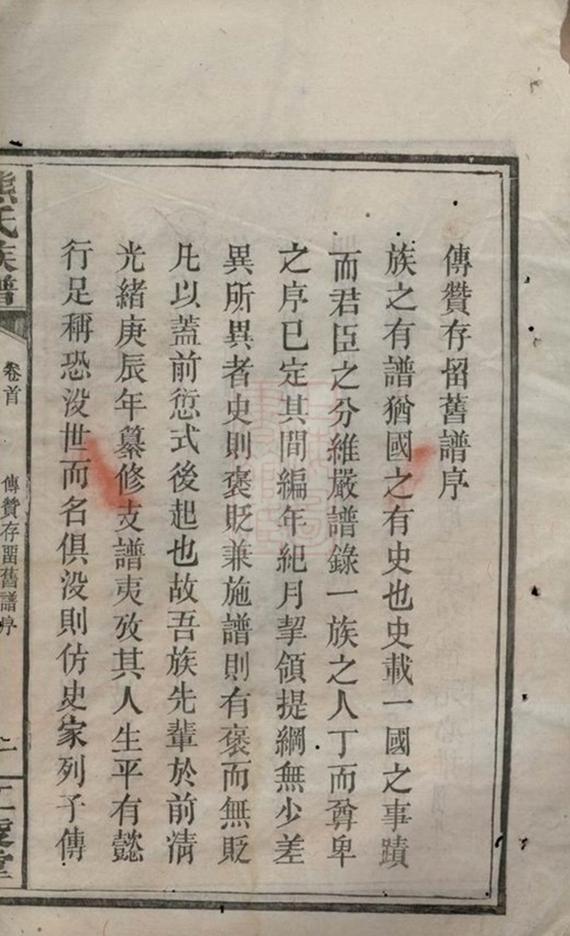 傳贊存留舊譜序
族之有譜猶國之有史也史載一國之事蹟
而君臣之分維嚴譜錄一族之人丁而尊卑
之序已定其間編年紀月挈領提綱無少差
異所異者史則褒貶兼施譜則有褒而無貶
凡以蓋前愆式後起也故吾族先輩於前清
光緒庚辰年纂修支譜夷攷其人生平有懿
行足稱恐没世而名俱没則仿史家列子傳
熊氏族譜
卷首
傳贊存留舊譜序